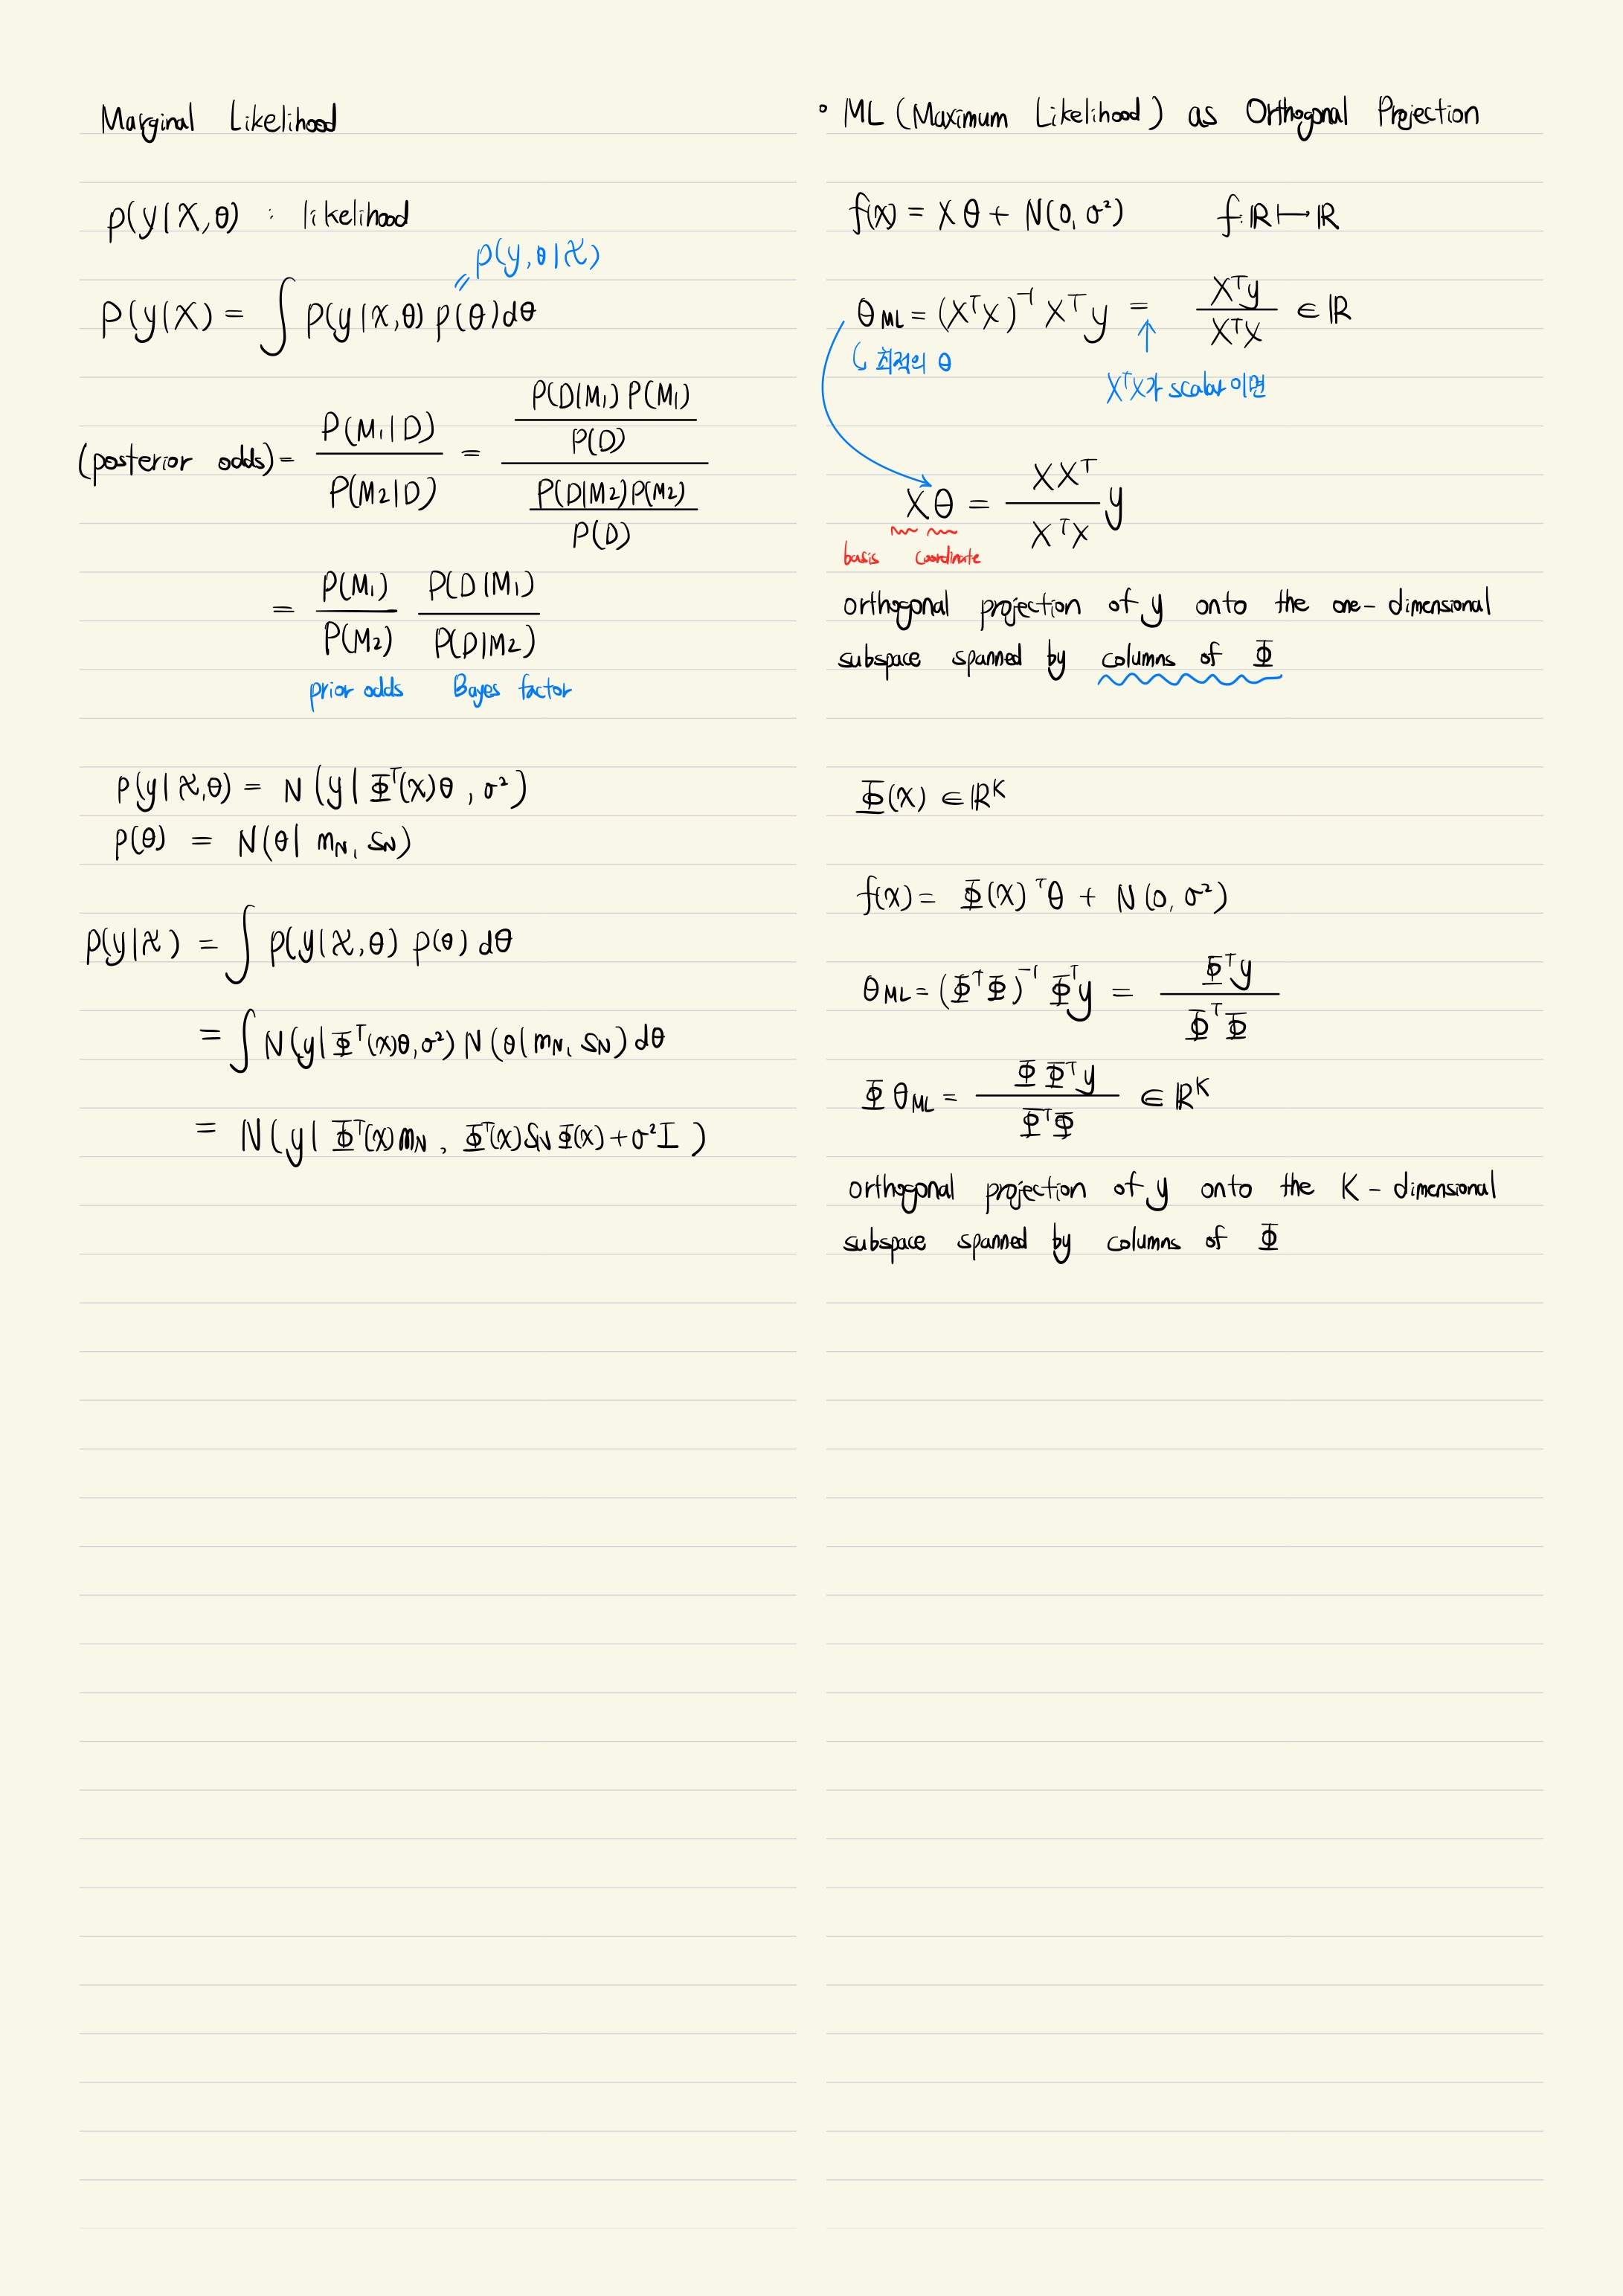 Marginal Likelihood
p(y|X,θ) : likelihood
p(y,θ|X)
〃
P(y|X) = ∫ p(y|X,θ) p(θ)dθ
(posterior odds) = P(M₁|D) / P(M₂|D) = (P(D|M₁) P(M₁) / P(D)) / (P(D|M₂)P(M₂) / P(D))
= P(M₁) / P(M₂) P(D|M₁) / P(D|M₂)
prior odds Bayes factor
P(y|X,θ) = N(y|Φᵀ(x)θ, σ²)
P(θ) = N(θ| m_N, S_N)
P(y|X) = ∫ p(y|X,θ) p(θ) dθ
= ∫ N(y|Φᵀ(x)θ,σ²) N(θ|m_N, S_N) dθ
= N(y| Φᵀ(x)m_N, Φᵀ(x)S_NΦ(x)+σ²I )
° ML (Maximum Likelihood) as Orthogonal Projection
f(x) = Xθ + N(0, σ²) f: ℝ ↦ ℝ
θ_ML = (XᵀX)⁻¹ Xᵀy = Xᵀy / XᵀX ∈ ℝ
최적의 θ
↑
XᵀX가 scalar 이면
Xθ = XXᵀ / XᵀX y
basis coordinate
orthogonal projection of y onto the one-dimensional
subspace spanned by columns of Φ
Φ(x) ∈ ℝᴷ
f(x) = Φ(x)ᵀθ + N(0, σ²)
θ_ML = (ΦᵀΦ)⁻¹ Φᵀy = Φᵀy / ΦᵀΦ
Φ θ_ML = ΦΦᵀy / ΦᵀΦ ∈ ℝᴷ
orthogonal projection of y onto the K-dimensional
subspace spanned by columns of Φ